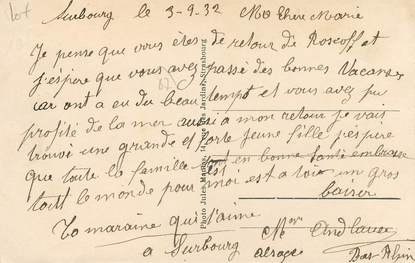 lot
Surbourg le 3-9.32 Ma Chère Marie
Je pense que vous êtes de retour de Roscoff et
j'espère que vous avez passé des bonnes Vacances
car ont a eu du beau tempt et vous avez pu
profité de la mer aussi a mon retour je vais
trouvé une grande et forte jeune fille j'espère
que toute la famille est en bonne santé embrasse
tout le monde pour moi est a toi un gros
baiser
Ta maraine qui t'aime
Mme
a Surbourg alsace
Bas-Rhin
Photo Jules Strasbourg